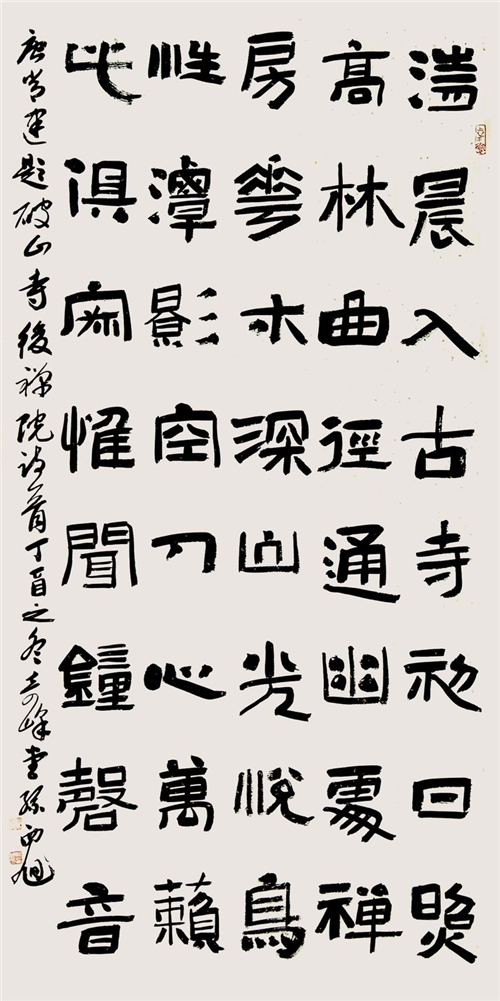 清晨入古寺初日照
高林曲徑通幽處禪
房華木深山光悅鳥
性潭影空人心萬籟
此俱寂惟聞鐘磬音
唐常建題破山寺後禪院詩一首丁酉之冬峰堂孫